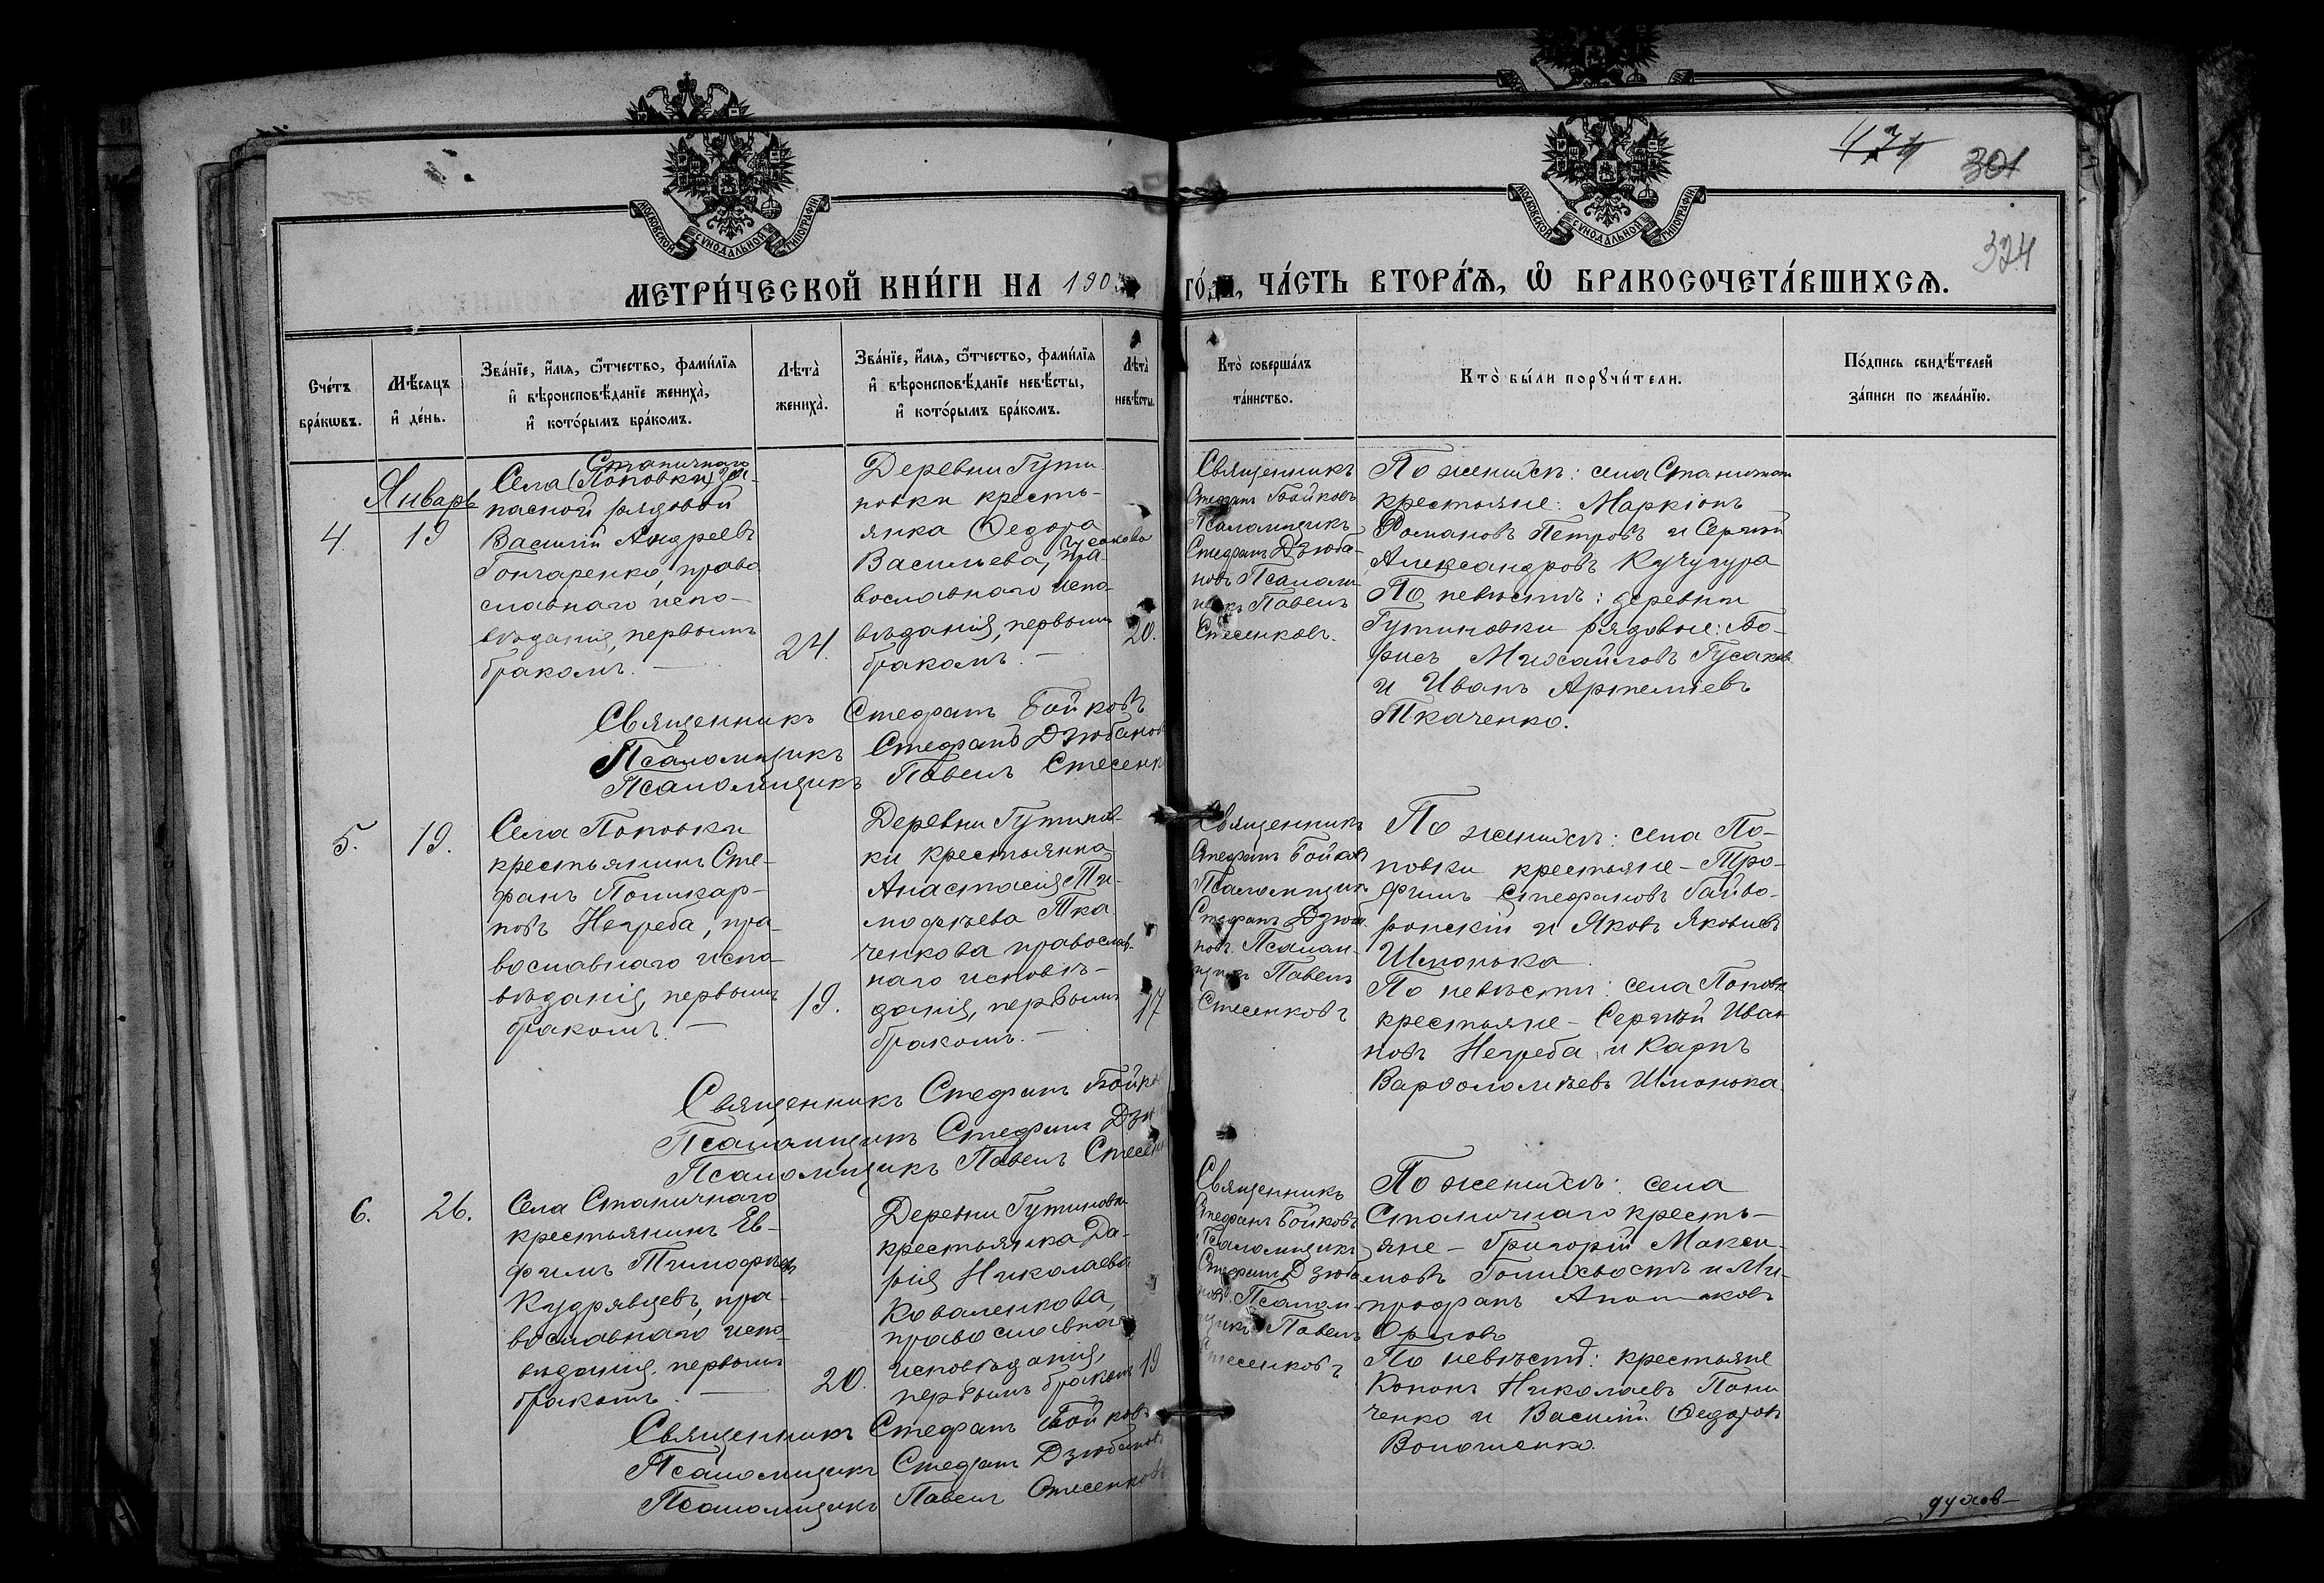 МОСКОВСКОЙ СѴНОДАЛЬНОЙ ТИПОГРАФІИ
МОСКОВСКОЙ СѴНОДАЛЬНОЙ ТИПОГРАФІИ
301
324
МЕТРИ́ЧЕСКОЙ КНИ́ГИ НА 190
ЧА́СТЬ ВТОРА́Ѧ, Ѡ҆ БРАКОСОЧЕТА́ВШИХСѦ.
Сче́тъ
бра́кѡвъ.
Мѣ́сяцъ
и҆ де́нь.
Зва́нїе, и҆́мя, ѻ҆́тчество, фами́лїя
и҆ вѣроисповѣ́данїе жениха̀,
и҆ кото́рымъ бра́комъ.
Лѣ́та̀
жениха̀.
Зва́нїе, и҆́мя, ѻ҆́тчество, фами́лїя
и҆ вѣроисповѣ́данїе невѣ́сты,
и҆ кото́рымъ бра́комъ.
Лѣ́та̀
невѣ́сты.
Кто̀ соверша́лъ
та́инство.
Кто̀ бы́ли порꙋчи́тели.
По́дпись свидѣ́телей
за́писи по жела́нїю.
Январь
4. 19
Станичнаго
Села (Поповки) за-
пасной рядовой
Василій Андреевъ
Гончаренко, право
славнаго испо-
вѣданія, первымъ
бракомъ. —
24.
Деревни Гути
новки кресть-
янка Ѳедора
Гусакова
Васильева, пра-
вославнаго испо-
вѣданія, первымъ
бракомъ. —
20.
Священникъ
Стефанъ Бойковъ
Псаломщикъ
Стефанъ Дзюба-
новъ Псалом
Павелъ
Стесенковъ.
По женихѣ: села Станичнаго
крестьяне: Маркіонъ
Романовъ Петровъ и Сергѣй
Александровъ Кучугура
По невѣстѣ: деревни
Гутиновки рядовые: Бо-
рисъ Михайловъ Гусаковъ
и Иванъ Артеміевъ
Ткаченко.
Священникъ Стефанъ Бойковъ
Псаломщикъ Стефанъ Дзюбановъ
Псаломщикъ Павелъ Стесенк
5. 19.
Села Поповки
крестьянинъ Сте-
фанъ Поликар-
повъ Негреба, пра-
вославнаго испо-
вѣданія, первымъ
бракомъ. —
19.
Деревни Гутинов-
ки крестьянка
Анастасія Ти-
мофѣева Тка
ченкова православ-
наго исповѣ-
данія, первымъ
бракомъ. —
17
Священникъ
Стефанъ Бойков
Псаломщик
Стефанъ Дзюба
новъ. Псалом-
щикъ Павелъ
Стесенковъ
По женихѣ: села По-
повки крестьяне - Тро-
фимъ Стефановъ Гайво-
ронскій и Яковъ Яковлевъ
Шмонька.
По невѣстѣ: села Поповк
крестьяне - Сергѣй Иван
новъ Негреба и Карпъ
Варѳоломѣевъ Шмонька.
Священникъ Стефанъ Бойко
Псаломщикъ Стефанъ Дзю
Псаломщикъ Павелъ Стесен
6. 26.
Села Станичнаго
крестьянинъ Ев-
фимъ Тимофѣевъ
Кудрявцевъ, пра-
вославнаго испо-
вѣданія, первымъ
бракомъ. —
20.
Деревни Гутиновки
крестьянка Да-
рія Николаева
Коваленкова,
православна
исповѣданія,
первымъ бракомъ
19
Священникъ
Стефанъ Бойковъ
Псаломщикъ
Стефанъ Дзюба
новъ. Псалом-
щикъ Павелъ
Стесенковъ
По женихѣ: села
Станичнаго кресть-
яне - Григорій Макси-
мовъ Голихвостъ и Ми-
трофанъ
Орловъ
По невѣстѣ: крестьяне
Кононъ Николаевъ
и Василій Ѳедоровъ
Волошенко.
Священникъ Стефанъ Бойковъ
Псаломщикъ Стефанъ Дзюбановъ
Псаломщикъ Павелъ Стесенковъ
духов-